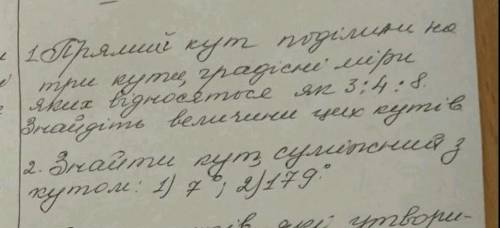 1. Прямий кут поділили на
три кути, градісні міри
яких відносяться як 3:4:8.
Знайдіть величини цих кутів
2. Знайти кут, суміжний з
кутом: 1) 7°; 2) 179°
які утвори-